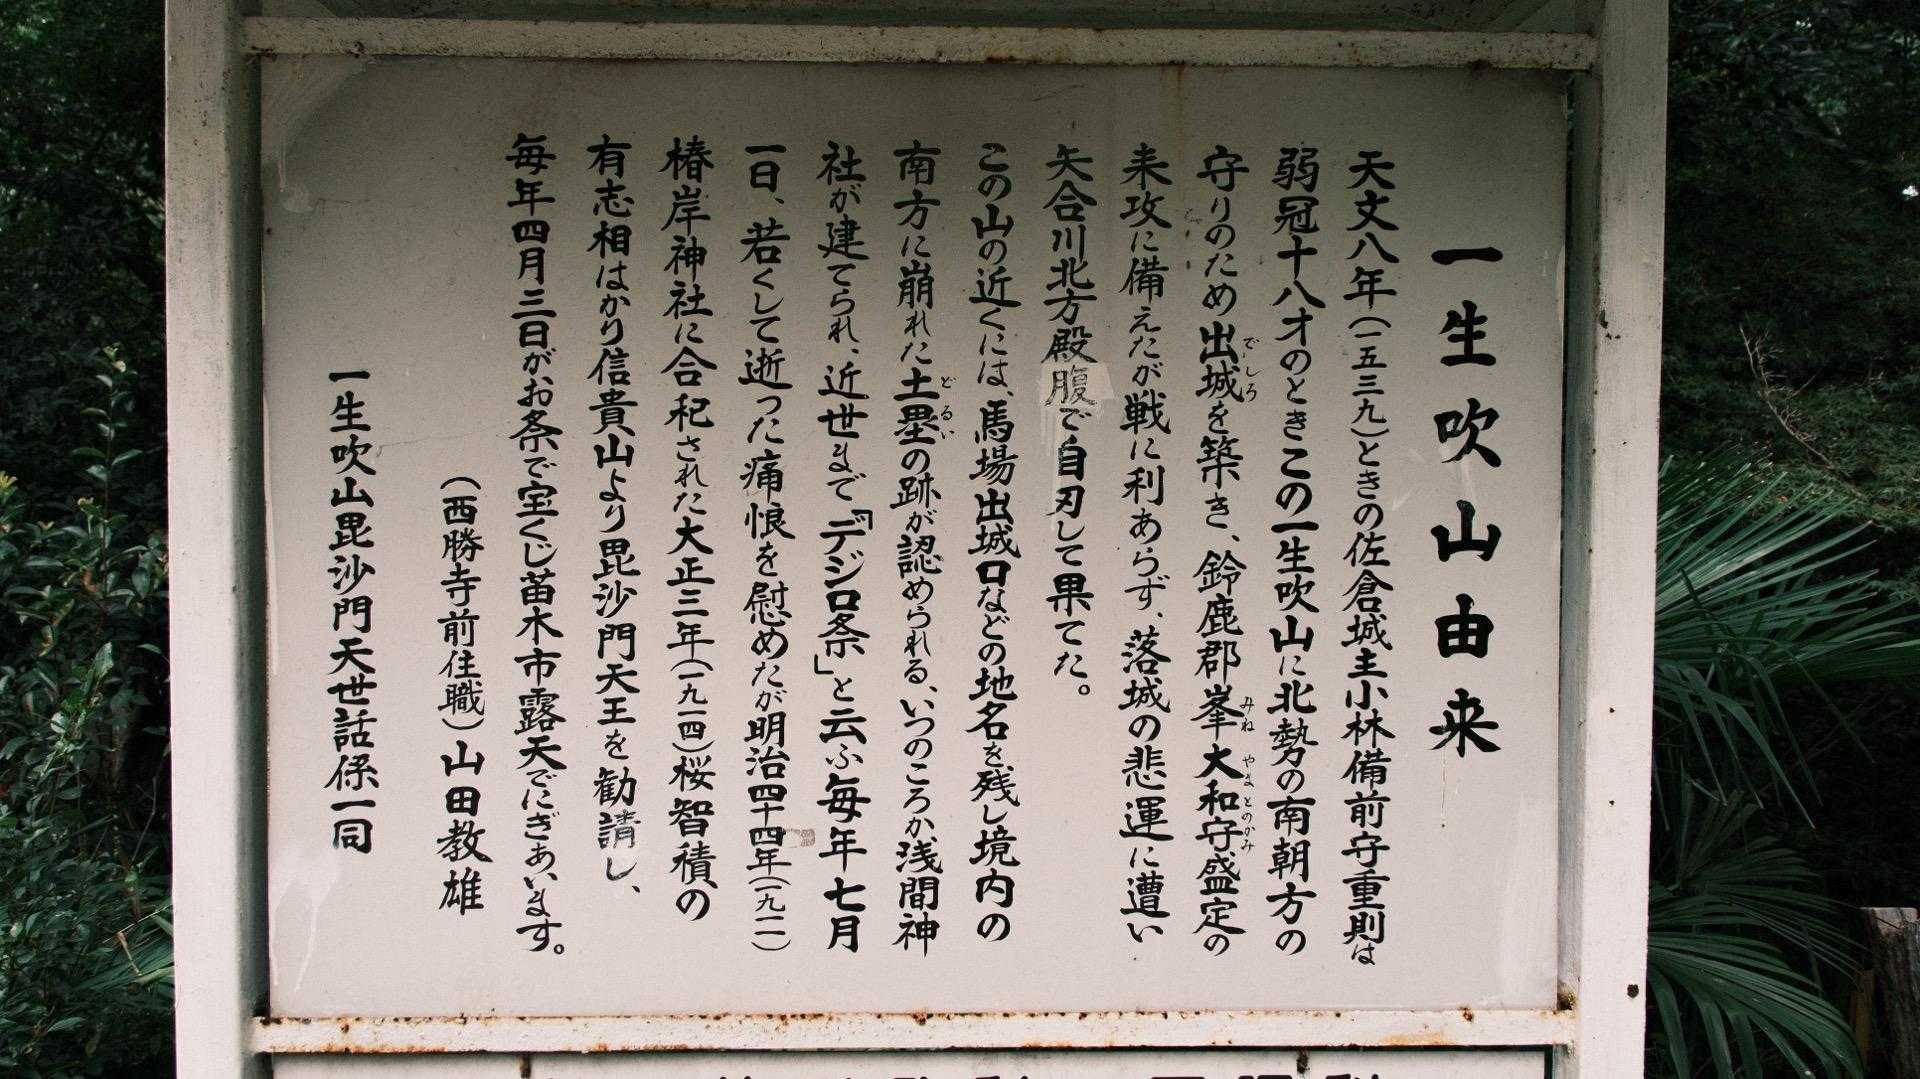 一生吹山由来
天文八年(一五三九)ときの佐倉城主小林備前守重則は
弱冠十八才のときこの一生吹山に北勢の南朝方の
守りのため出城を築き、鈴鹿郡峯大和守盛定の
でしろ
みね やまとのかみ
来攻に備えたが戦に利あらず、落城の悲運に遭い
矢合川北方殿腹で自刃して果てた。
この山の近くには、馬場出城口などの地名を残し境内の
南方に崩れた土塁の跡が認められる、いつのころか浅間神
どるい
社が建てられ、近世まで「デジロ祭」と云ふ毎年七月
一日、若くして逝った痛恨を慰めたが明治四十四年(一九一一)
椿岸神社に合祀された大正三年(一九一四)桜智積の
有志相はかり信貴山より毘沙門天王を勧請し、
毎年四月三日がお祭で宝くじ苗木市露天でにぎあいます。
(西勝寺前住職)山田教雄
一生吹山毘沙門天世話係一同